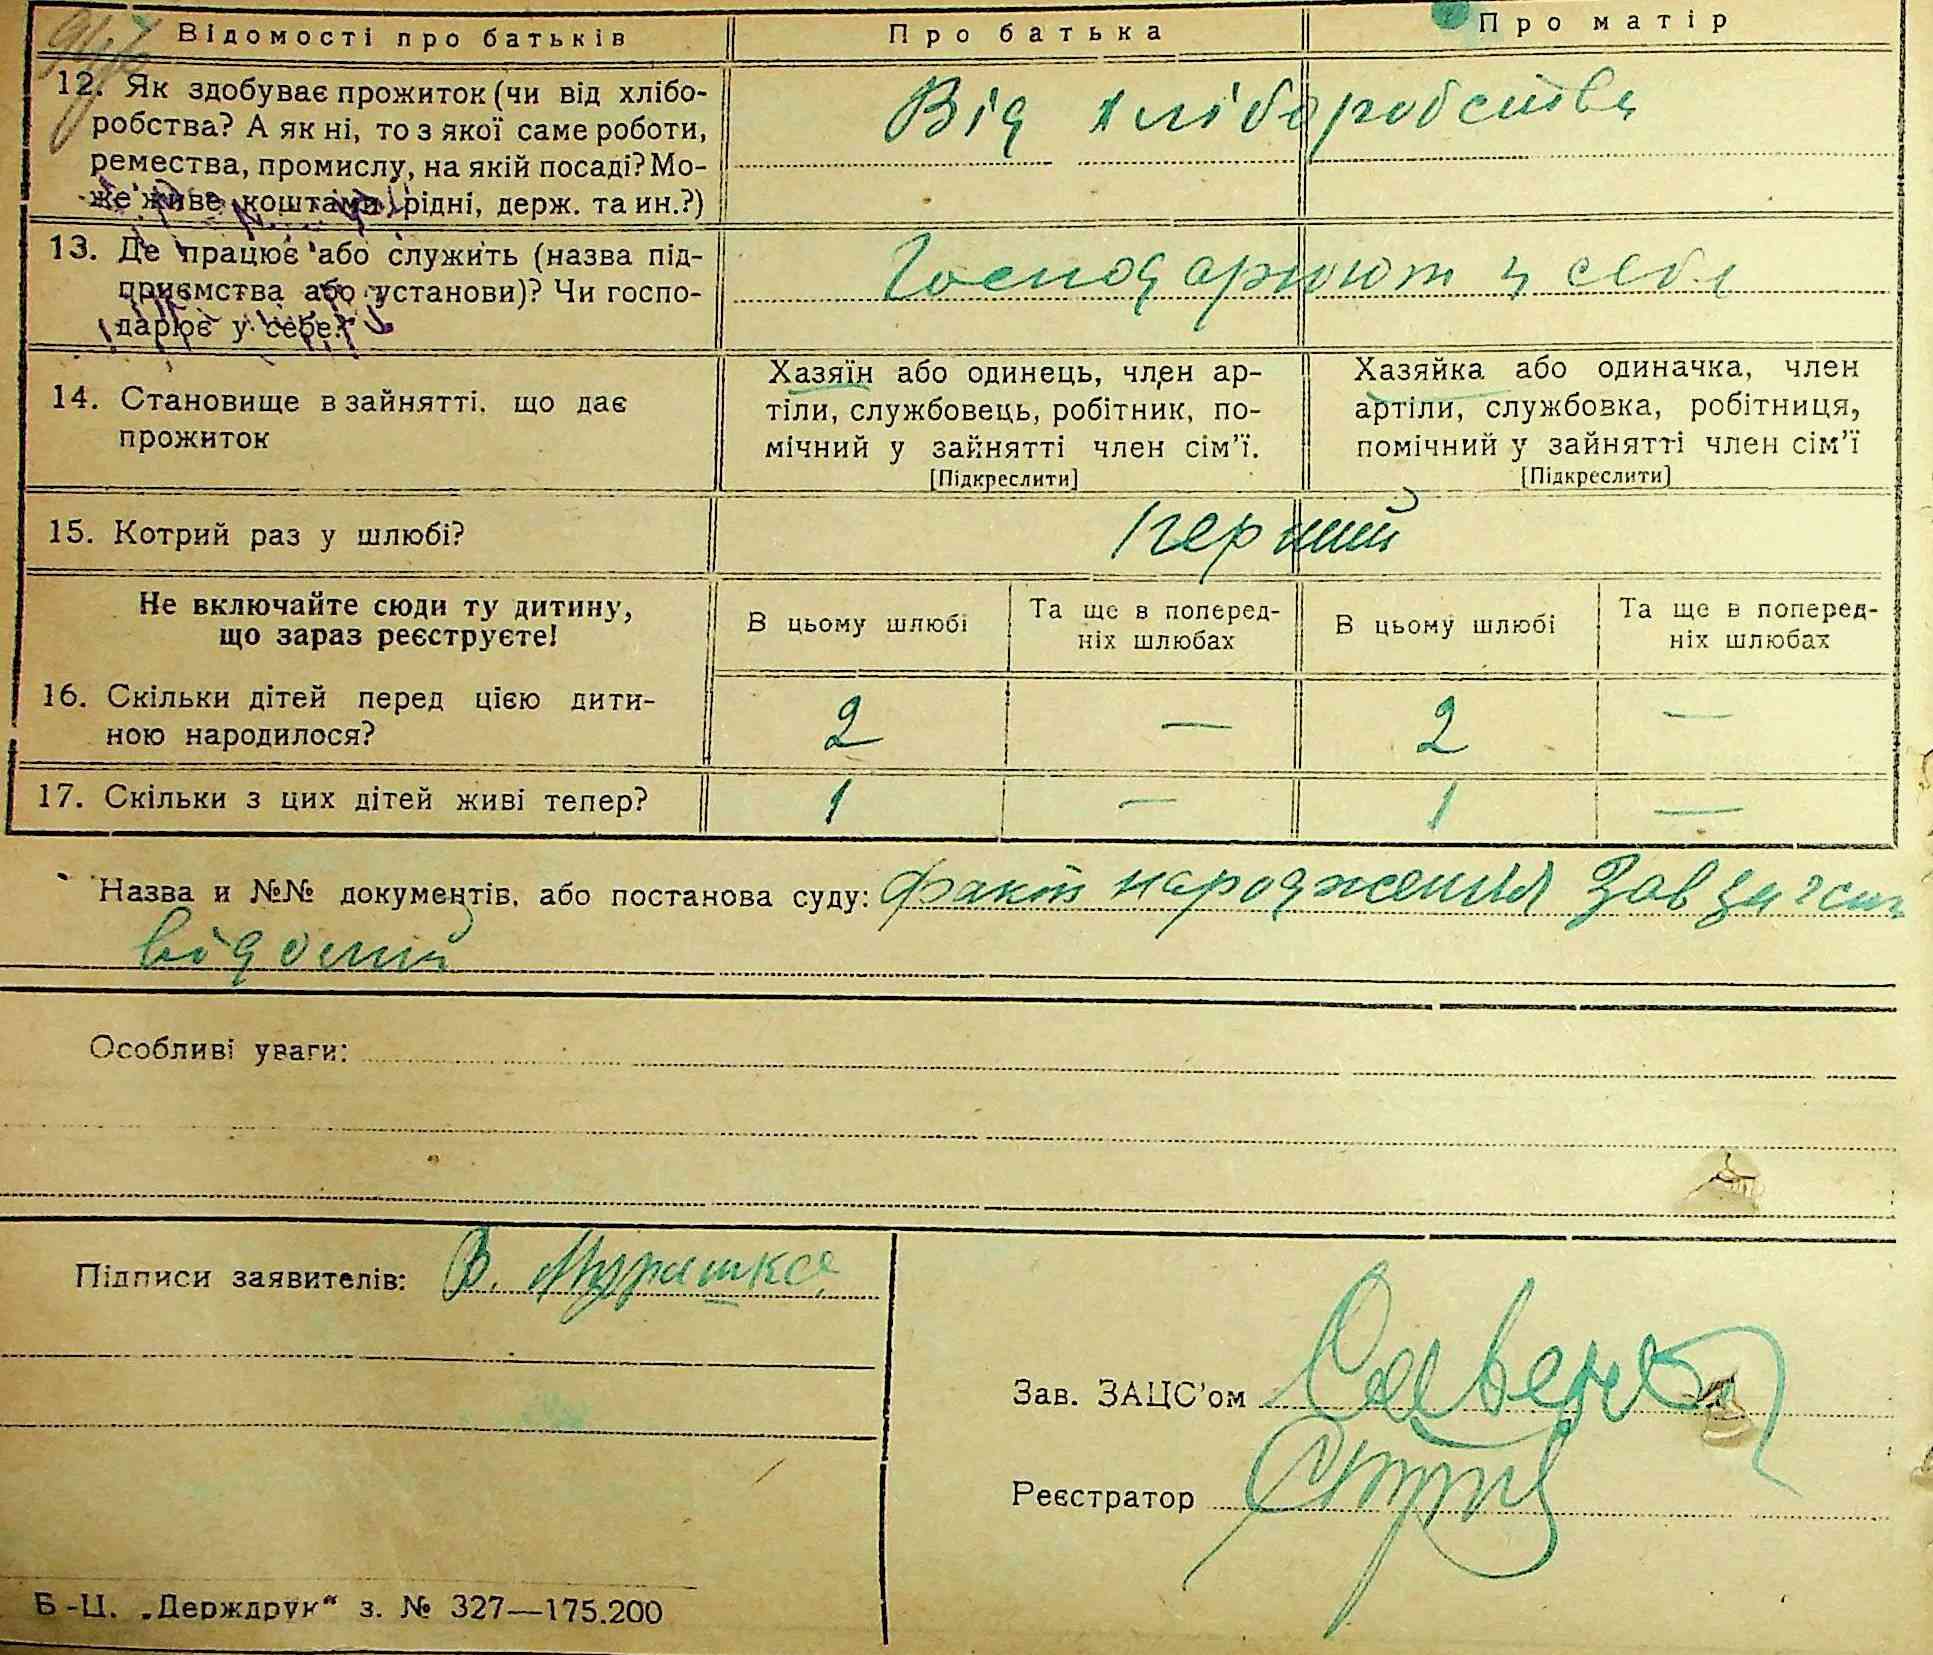 Відомості про батьків Про батька Про матір
12. Як здобуває прожиток (чи від хлібо-
робства? А як ні, то з якої саме роботи,
ремества, промислу, на якій посаді? Мо-
же живе коштами рідні, держ. та ин.?)
Від хліборобства
13. Де працює або служить (назва під-
приємства або установи)? Чи госпо-
дарює у себе?
Господарюют у себе
14. Становище в зайнятті, що дає
прожиток
Хазяїн або одинець, член ар-
тіли, службовець, робітник, по-
мічний у зайнятті член сім'ї.
[Підкреслити]
Хазяйка або одиначка, член
артіли, службовка, робітниця,
помічний у зайнятті член сім'ї
[Підкреслити]
15. Котрий раз у шлюбі? перший
Не включайте сюди ту дитину,
що зараз реєструєте!
В цьому шлюбі
Та ще в поперед-
ніх шлюбах
В цьому шлюбі
Та ще в поперед-
ніх шлюбах
16. Скільки дітей перед цією дити-
ною народилося?
2 — 2 —
17. Скільки з цих дітей живі тепер? 1 — 1 —
Назва и №№ документів, або постанова суду: факт народження
відомий
Особливі уваги:
Підписи заявителів: В. Мурашко
Зав. ЗАЦС'ом Савенко
Реєстратор
Б-Ц. „Держдрук“ з. № 327—175.200